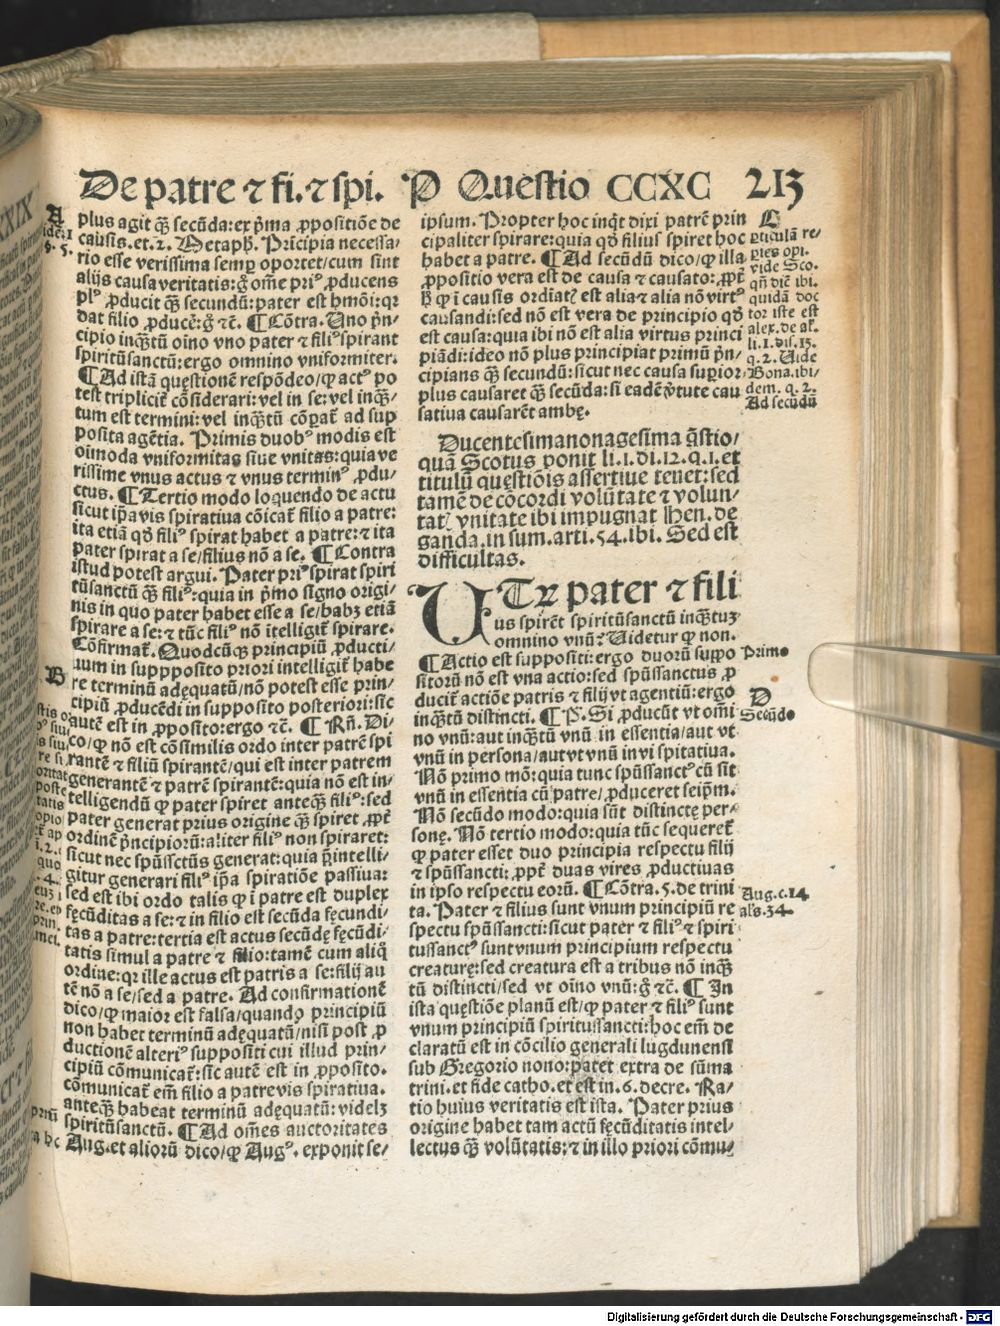 De patre ⁊ fi. ⁊ spi. P Questio CCXC 213
plus agit ꝙ̃ secūda: ex p̃ma ꝓpositiōe de
causis. et. 2. Metaph. Pricipia necessa/
rio esse verissima semꝑ oportet / cum sint
alijs causa veritatis: g̊ ome priꝰ ꝓducens
plꝰ ꝓducit ꝙ̃ secundū: pater est hmōi: qꝛ
dat filio ꝓducē: g̊ ⁊c̃. ¶ Cōtra. Uno pn̄-
cipio inꝙ̃tū oino vno pater ⁊ filiꝰ spirant
spiritūsanctū: ergo omnino vniformiter.
¶ Ad istā questionē respōdeo / ꝙ actꝰ po
test tripliciť cōsiderari: vel in se: vel inꝙ̃/
tum est termini: vel inꝙ̃tū cōꝑať ad sup
posita agētia. Primis duobꝰ modis est
oimoda vniformitas siue vnitas: quia ve
rissime vnus actus ⁊ vnus terminꝰ ꝓdu/
ctus. ¶ Tertio modo loquendo de actu
sicut ip̄a vis spiratiua cōicať filio a patre:
ita etiā qd̄ filiꝰ spirat habet a patre: ⁊ ita
pater spirat a se / filius nō a se. ¶ Contra
istud potest argui. Pater priꝰ spirat spiri
tūsanctū ꝙ̃ filiꝰ: quia in p̃mo signo origi/
nis in quo pater habet esse a se / habꝫ etiā
spirare a se: ⁊ tūc filiꝰ nō itelligiť spirare.
Cōfirmať. Quodcūqꝫ principiū ꝓducti/
uum in supposito priori intelligiť habe
re terminū adequatū / nō potest esse prin/
cipiū ꝓducēdi in supposito posteriori: sic
autē est in ꝓposito: ergo ⁊c̃. ¶ Rn̄. Di/
co / ꝙ nō est cōsimilis ordo inter patrē spi
rantē ⁊ filiū spirantē / qui est inter patrem
generantē ⁊ patrē spirantē: quia nō est in/
telligendū ꝙ pater spiret anteꝙ̃ filiꝰ: sed
pater generat prius origine ꝙ̃ spiret ꝓpť
ordinē pñcipiorū: aliter filiꝰ non spiraret:
sicut nec spūssctūs generat: quia p̃intelli/
gitur generari filiꝰ ip̄a spiratiōe passiua:
sed est ibi ordo talis ꝙ i patre est duplex
fecūditas a se: ⁊ in filio est secūda fecundi/
tas a patre: tertia est actus secūde fecūdi/
tatis simul a patre ⁊ filio: tamē cum aliq̃
ordine: qꝛ ille actus est patris a se: filij au
tē nō a se / sed a patre. Ad confirmationē
dico / ꝙ maior est falsa / quando principiū
non habet terminū adequatū / nisi post ꝓ
ductionē alteriꝰ suppositi cui illud prin/
cipiū cōmunicať: sic autē est in ꝓposito.
cōmunicať em̄ filio a patre vis spiratiua.
anteꝙ̃ habeat terminū adequatū: videlꝫ
spiritūsanctū. ¶ Ad om̄es auctoritates
Aug. et aliorū dico / ꝙ Augꝰ. exponit se/
ipsum. Propter hoc inqt dixi patrē prin
cipaliter spirare: quia qd̄ filius spiret hoc
habet a patre. ¶ Ad secūdū dico / ꝙ illa
ꝓpositio vera est de causa ⁊ causato: ꝓpť
h̄ ꝙ i causis ordiatꝭ est alia ⁊ alia nō virtꝰ
causandi: sed nō est vera de principio qd̄
est causa: quia ibi nō est alia virtus princi
piādi: ideo nō plus principiat primū pn̄/
cipians ꝙ̃ secundū: sicut nec causa supior/
plus causaret ꝙ̃ secūda: si eadē vtute cau
satiua causarēt ambe.
Ducentesimanonagesima q̄stio/
quā Scotus ponit li. 1. di. 12. q. 1. et
titulū questiōis assertiue tenet: sed
tamē de cōcordi volūtate ⁊ volun/
tatꝭ vnitate ibi impugnat Hen. de
ganda. in sum. arti. 54. ibi. Sed est
difficultas.
UTꝝ pater ⁊ fili
us spirēt spiritūsanctū inꝙ̃tuꝫ
omnino vnū? Uidetur ꝙ non.
¶ Actio est suppositi: ergo duorū suppo
sitorū nō est vna actio: sed spūssanctus ꝓ
duciť actiōe patris ⁊ filij vt agentiū: ergo
inꝙ̃tū distincti. ¶ P. Si ꝓducūt vt om̄i
no vnū: aut inꝙ̃tū vnū in essentia / aut vt
vnū in persona / aut vt vnū in vi spiratiua.
Nō primo mō: quia tunc spūssanctꝰ cū sit
vnū in essentia cū patre / ꝓduceret seip̄m.
Nō secūdo modo: quia sūt distincte per/
sone. Nō tertio modo: quia tūc sequereť
ꝙ pater esset duo principia respectu filij
⁊ spūssancti: ꝓpť duas vires ꝓductiuas
in ipso respectu eorū. ¶ Cōtra. 5. de trini
ta. Pater ⁊ filius sunt vnum principiū re
spectu spūssancti: sicut pater ⁊ filiꝰ ⁊ spiri
tussanctꝰ sunt vnum principium respectu
creature: sed creatura est a tribus nō inꝙ̃
tū distincti / sed vt oino vnū: g̊ ⁊c̃. ¶ In
ista questiōe planū est / ꝙ pater ⁊ filiꝰ sunt
vnum principiū spiritussancti: hoc em̄ de
claratū est in cōcilio generali lugdunensi
sub Gregorio nono: patet extra de sūma
trini. et fide catho. et est in. 6. decre. Ra/
tio huius veritatis est ista. Pater prius
origine habet tam actū fecūditatis intel/
lectus ꝙ̃ volūtatis: ⁊ in illo priori cōmu/
C
pticulā re/
ples opi.
vide Sco.
qn̄ dic̄ ibi.
quidā doc
tor iste est
alex. de al.
li. 1. dis. 15.
q. 2. Uide
Bona. ibi/
dem. q. 2.
Ad secūdū
Primo
D
Secūdo
Aug. c. 14
als. 34.
B
Digitalisierung gefördert durch die Deutsche Forschungsgemeinschaft - DFG